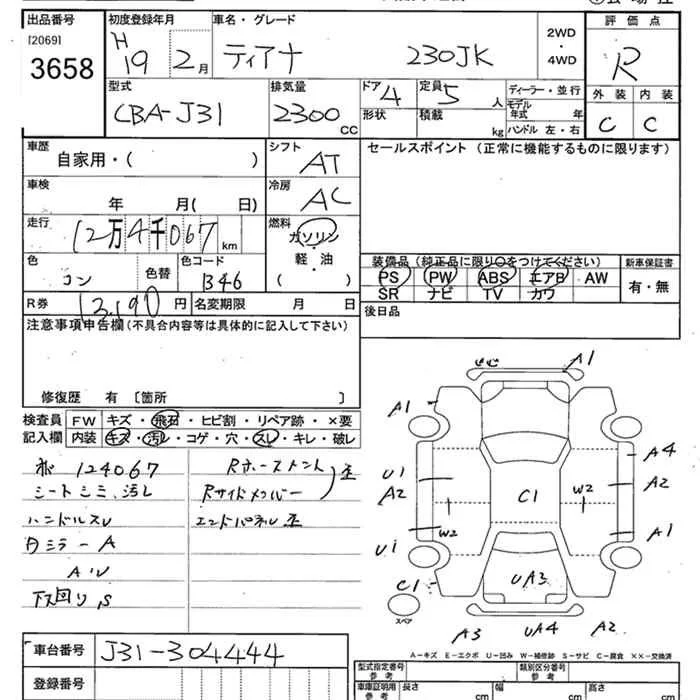 出品番号 [2069] 3658
初度登録年月 H19 2月
車名・グレード ティアナ 230JK
2WD・4WD
評価点 R
型式 CBA-J31
排気量 2300 CC
ドア 4 形状
定員 5人 積載 kg
ディーラー・並行
モデル年式 年
ハンドル 左・右
外装 内装
C C
車歴 自家用・( )
シフト AT
セールスポイント (正常に機能するものに限ります)
車検 年 月( 日)
冷房 AC
走行 12万4千067 km
燃料 ガソリン 軽・油 ( )
色 コン 色替
色コード B46
装備品 (純正品に限り○をつけてください)
新車保証書
PS PW ABS エアB AW
有・無
SR ナビ TV カワ
R券 13,190円 名変期限 月 日
後日品
注意事項申告欄 (不具合内容等は具体的に記入して下さい)
修復歴 有 〔箇所 〕
検査員 FW キズ・飛石・ヒビ割・リペア跡・×要
記入欄 内装 キズ・汚れ・コゲ・穴・スレ・キレ・破レ
124067
シートシミ、汚レ
ハンドルスレ
下回り、S
エンドパネル
A1
A1
A4
U1
A2
A2
C1
W2
W2
A1
U1
C1
UA3
スペア
A3
UA4
A2
A-キズ E-エクボ U-凹み W-補修跡 S-サビ C-腐食 ××-交換済
車台番号 J31-304444
登録番号
型式指定番号 参考
類別区分番号 参考
車庫証明用 参考 長さ cm 幅 cm 高さ cm